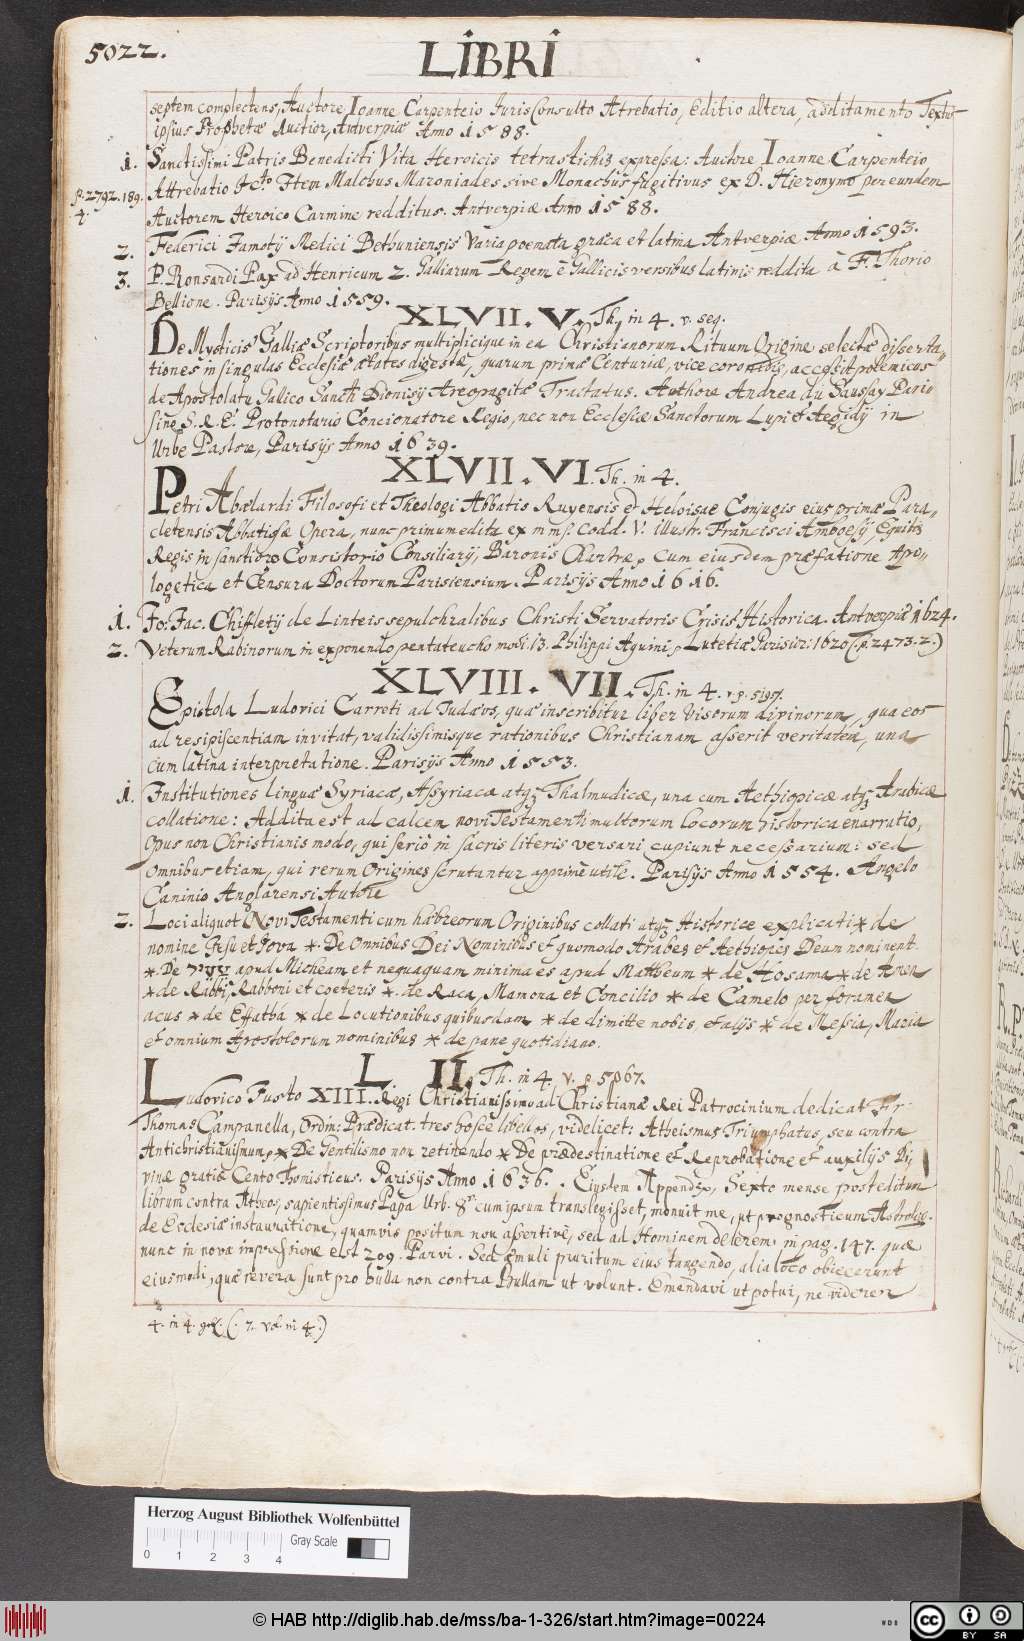 5022.
LIBRI
septem complectens, Auctore Ioanne Carpenteio Iuris Consulto Atrebatio, Editio altera, additamento Textus
ipsius Prophetæ Auctior, Antverpiæ Anno 1588.
1. Sanctissimi Patris Benedicti Vita Heroicis tetrastichis expressa: Auctore Ioanne Carpenteio
p. 2792. 189. Attrebatio Icto Item Malchus Maroniades sive Monachus fugitivus ex D. Hieronymo per eundem
4. Auctorem Heroico Carmine redditus. Antverpiæ Anno 1588.
2. Federici Jamotij Medici Bethuniensis Varia poemata græca et latina Antverpiæ Anno 1593.
3. P. Ronsardi Pax ad Henricum 2. Galliarum Regem è Gallicis versibus latinis reddita à F. Thorio
Bellione. Parisijs Anno 1559.
XLVII. V. Th. in 4. v. seq.
De Mysticis Galliæ Scriptoribus multiplicique in ea Christianorum Rituum Origine selectæ disserta„
tiones in singulas Ecclesiæ ætates digestæ, quarum primæ Centuriæ, vice coronidis, accessit polemicus
de Apostolatu Gallico Sancti Dionisij Areopagitæ Tractatus. Authore Andrea du Saussay Pari„
sino S. R. E. Protonotario Concionatore Regio, nec non Ecclesiæ Sanctorum Lupi et Aegidij in
Urbe Pastore, Parisijs Anno 1639.
XLVII. VI. Th. in 4.
Petri Abælardi Filosofi et Theologi Abbatis Ruyensis et Heloisæ Conjugis eius primæ Para„
cletensis Abbatissæ Opera, nunc primum edita ex mms. Codd. V. illustr. Francisci Amboesij, Equitis
Regis in sanctiore Consistorio Consiliarij, Baronis Chartræ, Cum eiusdem præfatione Apo„
logetica et Censura Doctorum Parisiensium. Parisijs Anno 1616.
1. Jo: Jac. Chiffletij de Linteis sepulchralibus Christi Servatoris Crisis Historica. Antverpiæ 1624.
2. Veterum Rabinorum in exponendo pentateucho modi 13. Philippi Aquini, Lutetiæ Parisior: 1620 (. p. 2473. 2.)
XLVIII. VII. Th. in 4. v. p. 5197.
Epistola Ludovici Carreti ad Judæos, quæ inscribitur liber Visorum divinorum, qua eos
ad resipiscentiam invitat, validissimisque rationibus Christianam asserit veritatem, una
cum latina interpretatione. Parisijs Anno 1553.
1. Institutiones linguæ Syriacæ, Assyriacæ atq; Thalmudicæ, una cum Aethiopicæ atq; Arabicæ
collatione: Addita est ad calcem novi Testamenti multorum locorum historica enarratio,
Opus non Christianis modo, qui seriò in sacris literis versari cupiunt necessarium: sed
omnibus etiam, qui rerum Origines scrutantur apprimè utile. Parisijs Anno 1554. Angelo
Caninio Anglarensi Autore
2. Loci aliquot Novi Testamenti cum hæbreorum Originibus collati atq; Historice explicati * de
nomine Jesu et Jova * De Omnibus Dei Nominibus et quomodo Arabes et Aethiopes Deum nominent
* De צעיר apud Micheam et nequaquam minima es apud Matheum * de Hosanna * de Amen
* de Rabbi, Rabboni et coeteris * de Raca, Mamona et Concilio * de Camelo per foramen
acus * de Effatha * de Locutionibus quibusdam * de dimitte nobis, et alijs * de Messia, Maria
et omnium Apostolorum nominibus * de pane quotidiano.
L. II. Th. in 4. v. p. 5067.
Ludovico Justo XIII. Regi Christianissimo ad Christianæ Rei Patrocinium dedicat Fr.
Thomas Campanella, Ordin: Prædicat. tres hosce libellos, videlicet: Atheismus Triumphatus, seu contra
Antichristianismum, * De Gentilismo non retinendo * De prædestinatione et Reprobatione et auxilijs Di„
vinæ gratiæ Cento Thomisticus. Parisijs Anno 1636. . Eiusdem Appendix, Sexto mense post editum
librum contra Atheos, sapientissimus Papa Urb. 8. cum ipsum translegisset, monuit me, ut prognosticum Astrolog.
de Ecclesiæ instauratione, quamvis positum non assertivè, sed ad Hominem delerem in pag. 147. quæ
nunc in nova impressione est 209. Parvi. Sed æmuli pruritum eius tangendo, alia loco obiecerunt
eiusmodi, quæ revera sunt pro bulla non contra Bullam ut volunt. Emendavi ut potui, ne viderer
4. in 4. (. 7. vol. in 4.)
Herzog August Bibliothek Wolfenbüttel
Gray Scale
0 1 2 3 4
© HAB http://diglib.hab.de/mss/ba-1-326/start.htm?image=00224
WDB
cc BY SA